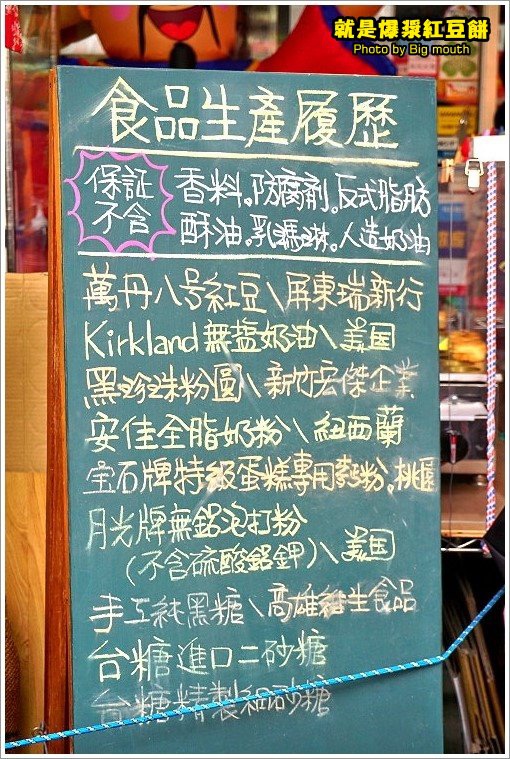 就是爆漿紅豆餅
Photo by Big mouth
食品生產履歷
保証
不含
香料。防腐劑。反式脂肪
酥油。乳瑪琳。人造奶油
萬丹八号紅豆\屏東瑞新行
Kirkland無塩奶油\美国
黑珍珠粉圓\新竹宏傑企業
安佳全脂奶粉\紐西蘭
宝石牌特級蛋糕專用麪粉。桃園
月光牌無鋁泡打粉
(不含硫酸鋁鉀)\美国
手工純黑糖\高雄 生食品
台糖進口二砂糖
台糖精製細砂糖